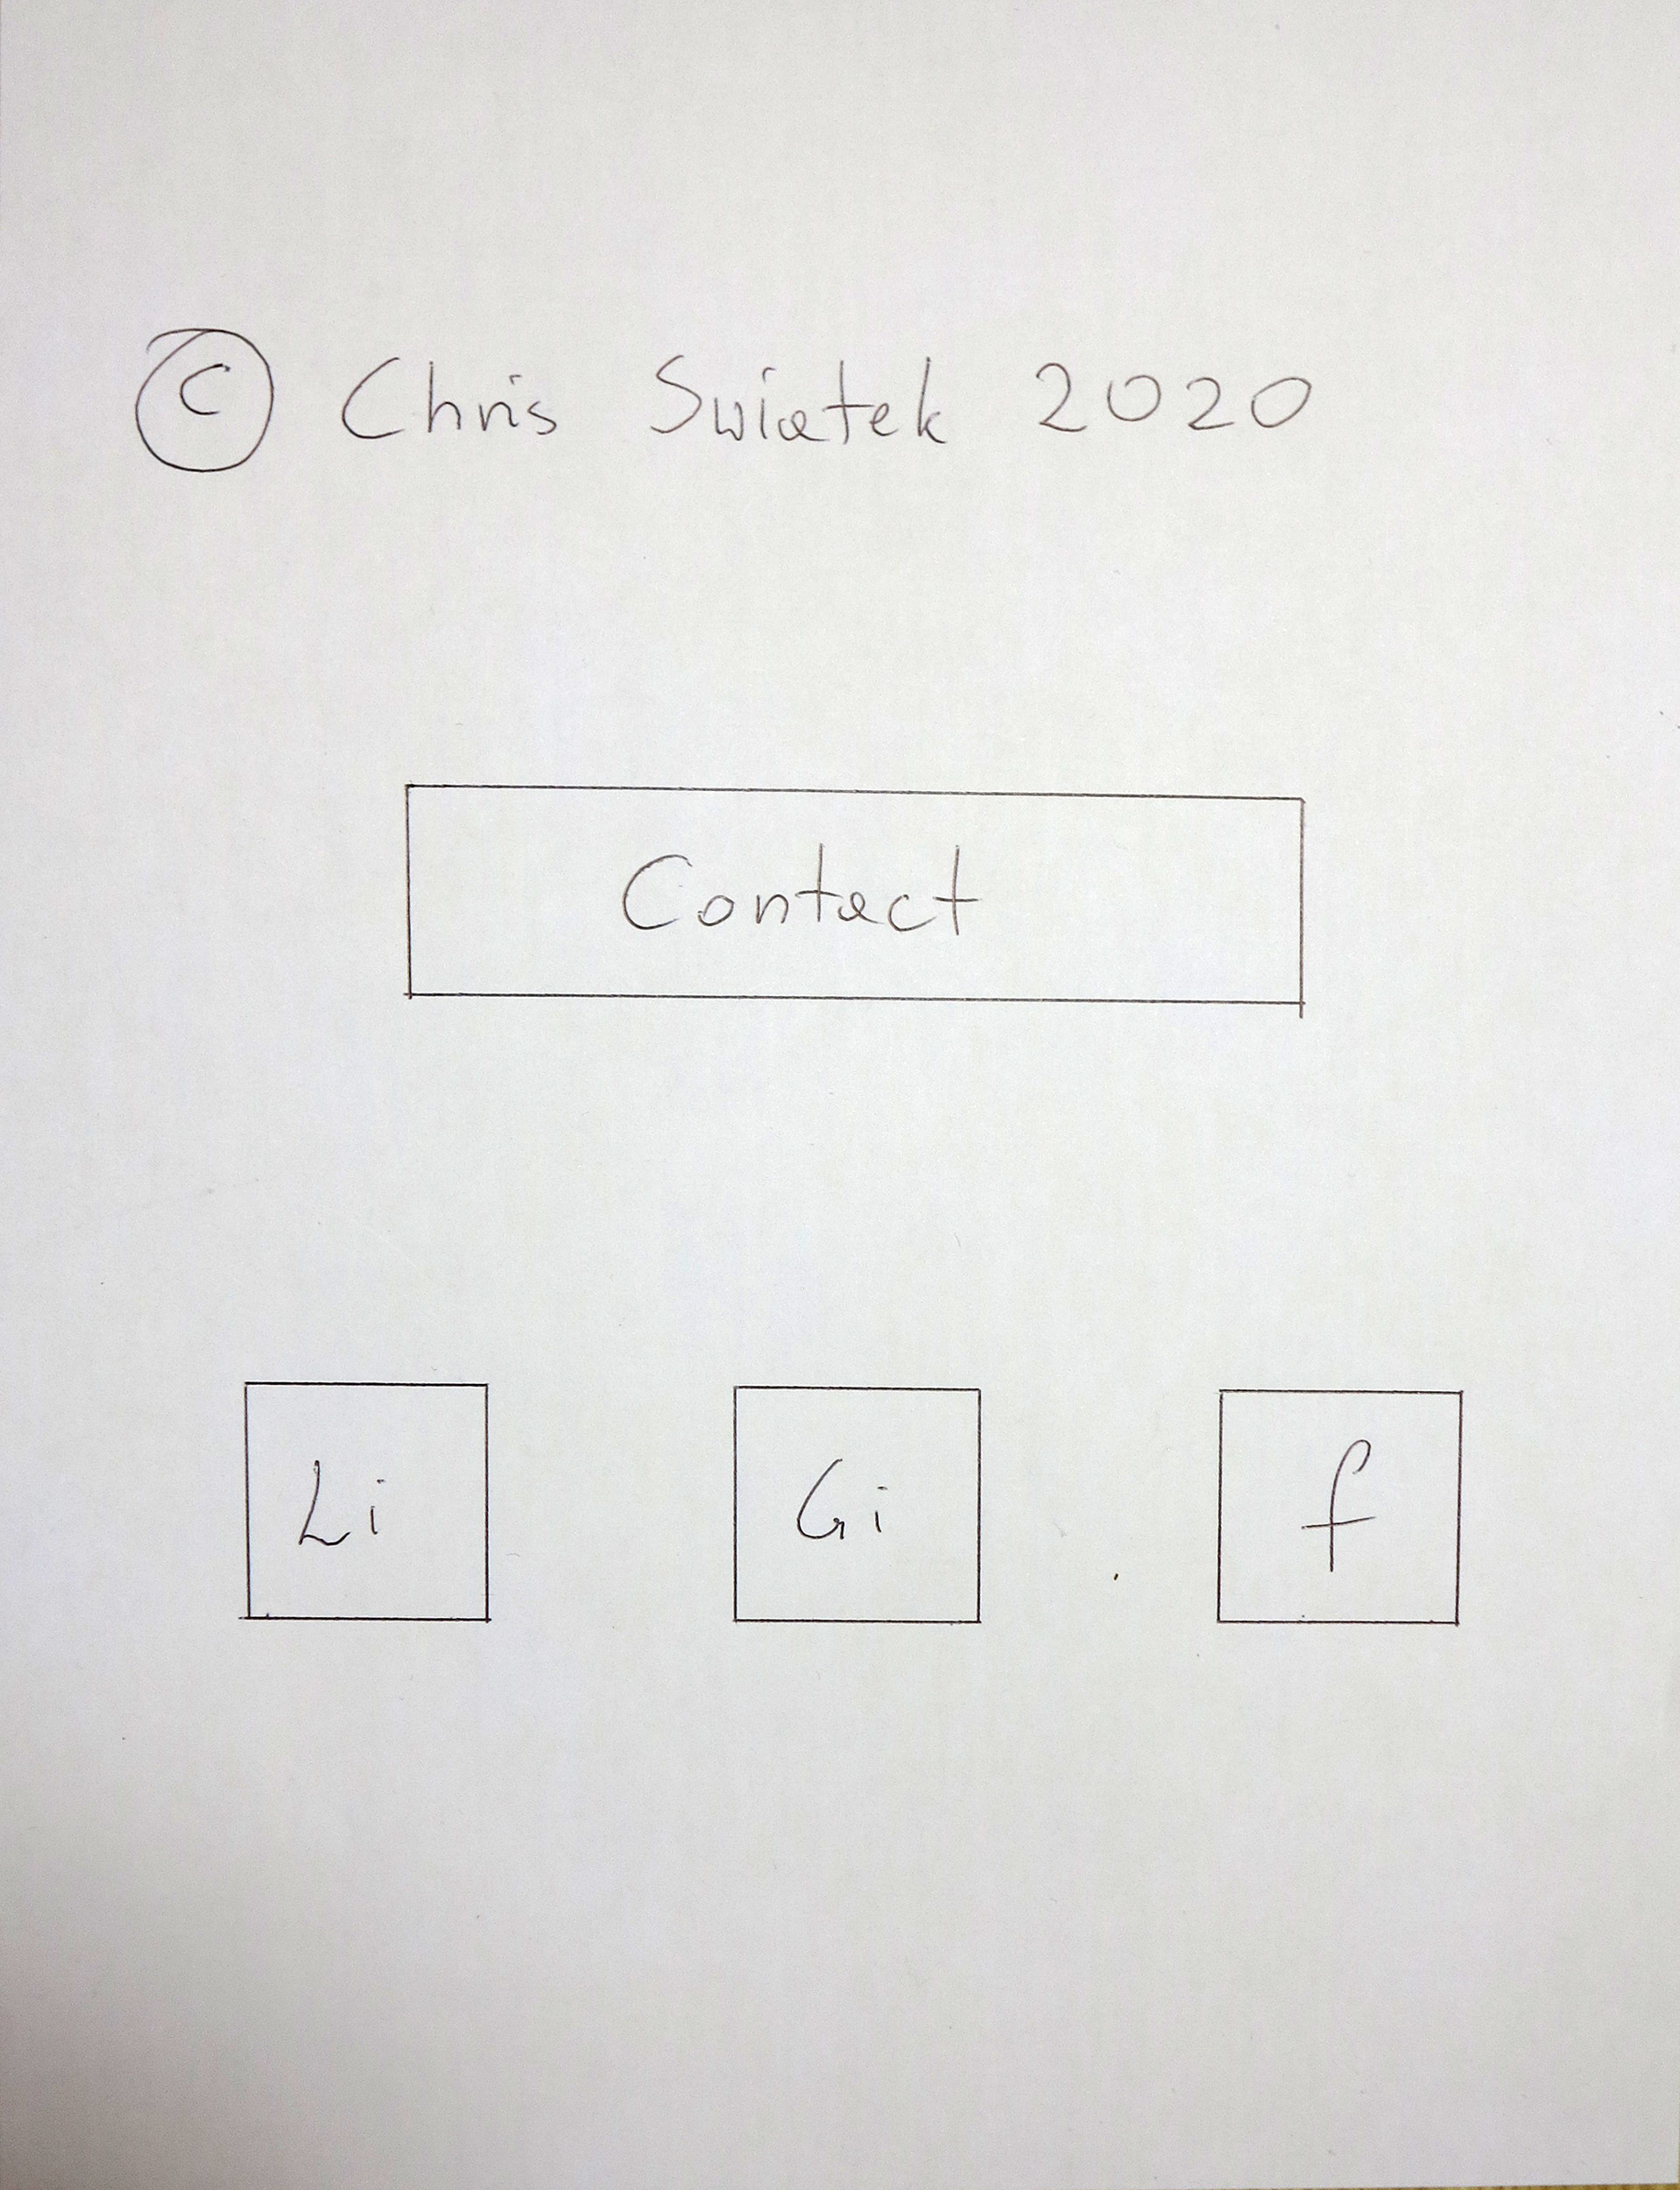 © Chris Swiatek 2020
Contact
Li Gi f